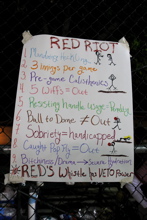 RED RIOT
1. Mandatory Heckling
2. 3 innings per game
3. Pre-game Calisthenics
4. 5 Whiffs = Out
5. Resining handle usage - Penalty
6. Ball to Dome ≠ Out
7. Sobriety = handicapped
8. Caught Pop Fly = Out
9. Bitchiness/Drama →
*RED'S Whistle has VETO Power